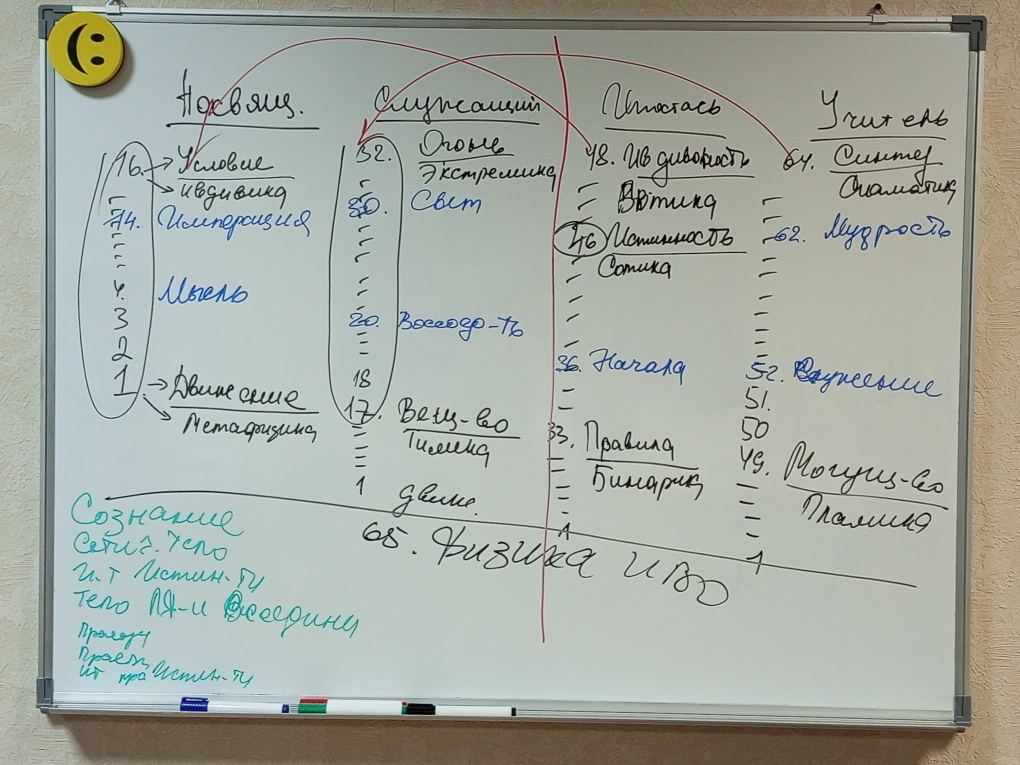 Посвящ.
16. Условие
ивдивика
14. Империция
4. Мысль
3
2
1 Движение
Метафизика
Служащий
32. Огонь
Экстремика
30. Свет
20. Воссоед-ть
18
17. Вещ-во
Тилика
1 движ.
Ипостась
48. Ив дивность
46 Истинность
Сотика
36. Начала
33. Правила
Бинарик
1
Учитель
64. Синтез
62. Мудрость
52. Служение
51.
50
49. Могущ-во
Пламика
1
65. Физика ИВО
Сознание
Тело
ИТ Истин-ти
Тело
Истин-ти